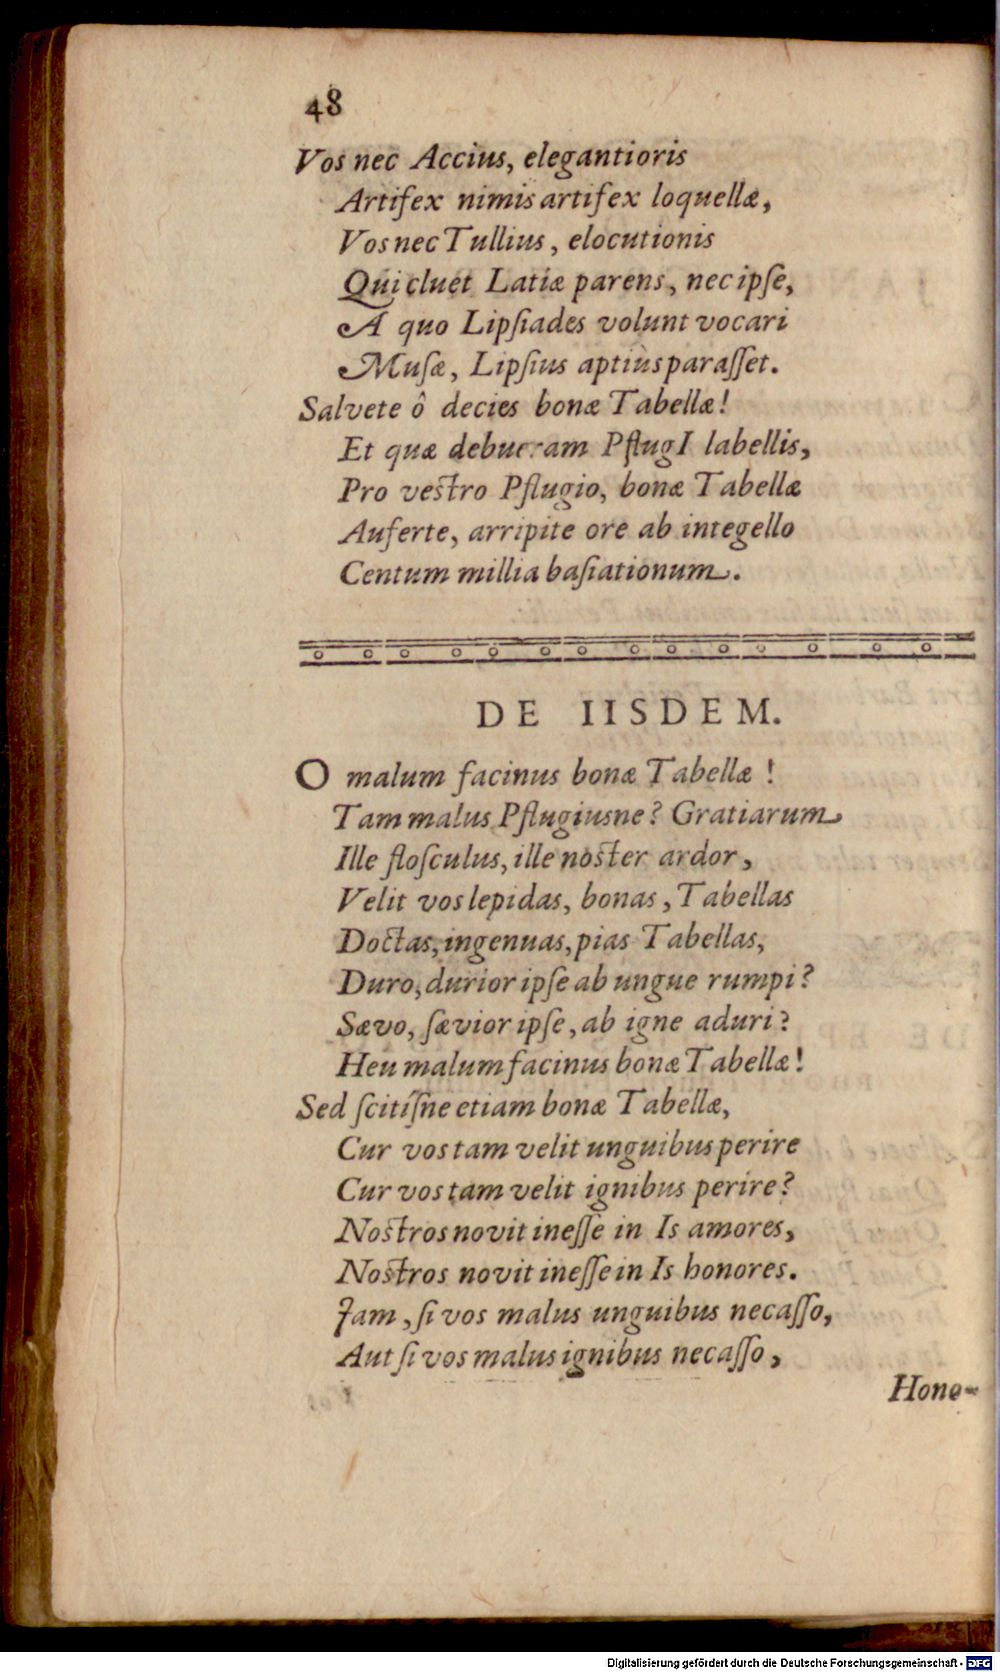 48
Vos nec Accius, elegantioris
Artifex nimis artifex loquellæ,
Vos nec Tullius, elocutionis
Qui cluet Latiæ parens, nec ipſe,
A quo Lipſiades volunt vocari
Muſæ, Lipſius aptiùs paraſſet.
Salvete ô decies bonæ Tabellæ!
Et quæ debueram PflugI labellis,
Pro veſtro Pflugio, bonæ Tabellæ
Auferte, arripite ore ab integello
Centum millia baſiationum.
DE IISDEM.
O malum facinus bonæ Tabellæ!
Tam malus Pflugiusne? Gratiarum
Ille floſculus, ille noſter ardor,
Velit vos lepidas, bonas, Tabellas
Doctas, ingenuas, pias Tabellas,
Duro, durior ipſe ab ungue rumpi?
Sævo, ſævior ipſe, ab igne aduri?
Heu malum facinus bonæ Tabellæ!
Sed ſcitiſne etiam bonæ Tabellæ,
Cur vos tam velit unguibus perire
Cur vos tam velit ignibus perire?
Noſtros novit ineſſe in Is amores,
Noſtros novit ineſſe in Is honores.
Jam, ſi vos malus unguibus necaſſo,
Aut ſi vos malus ignibus necaſſo,
Hone-
Digitalisierung gefördert durch die Deutsche Forschungsgemeinschaft - DFG